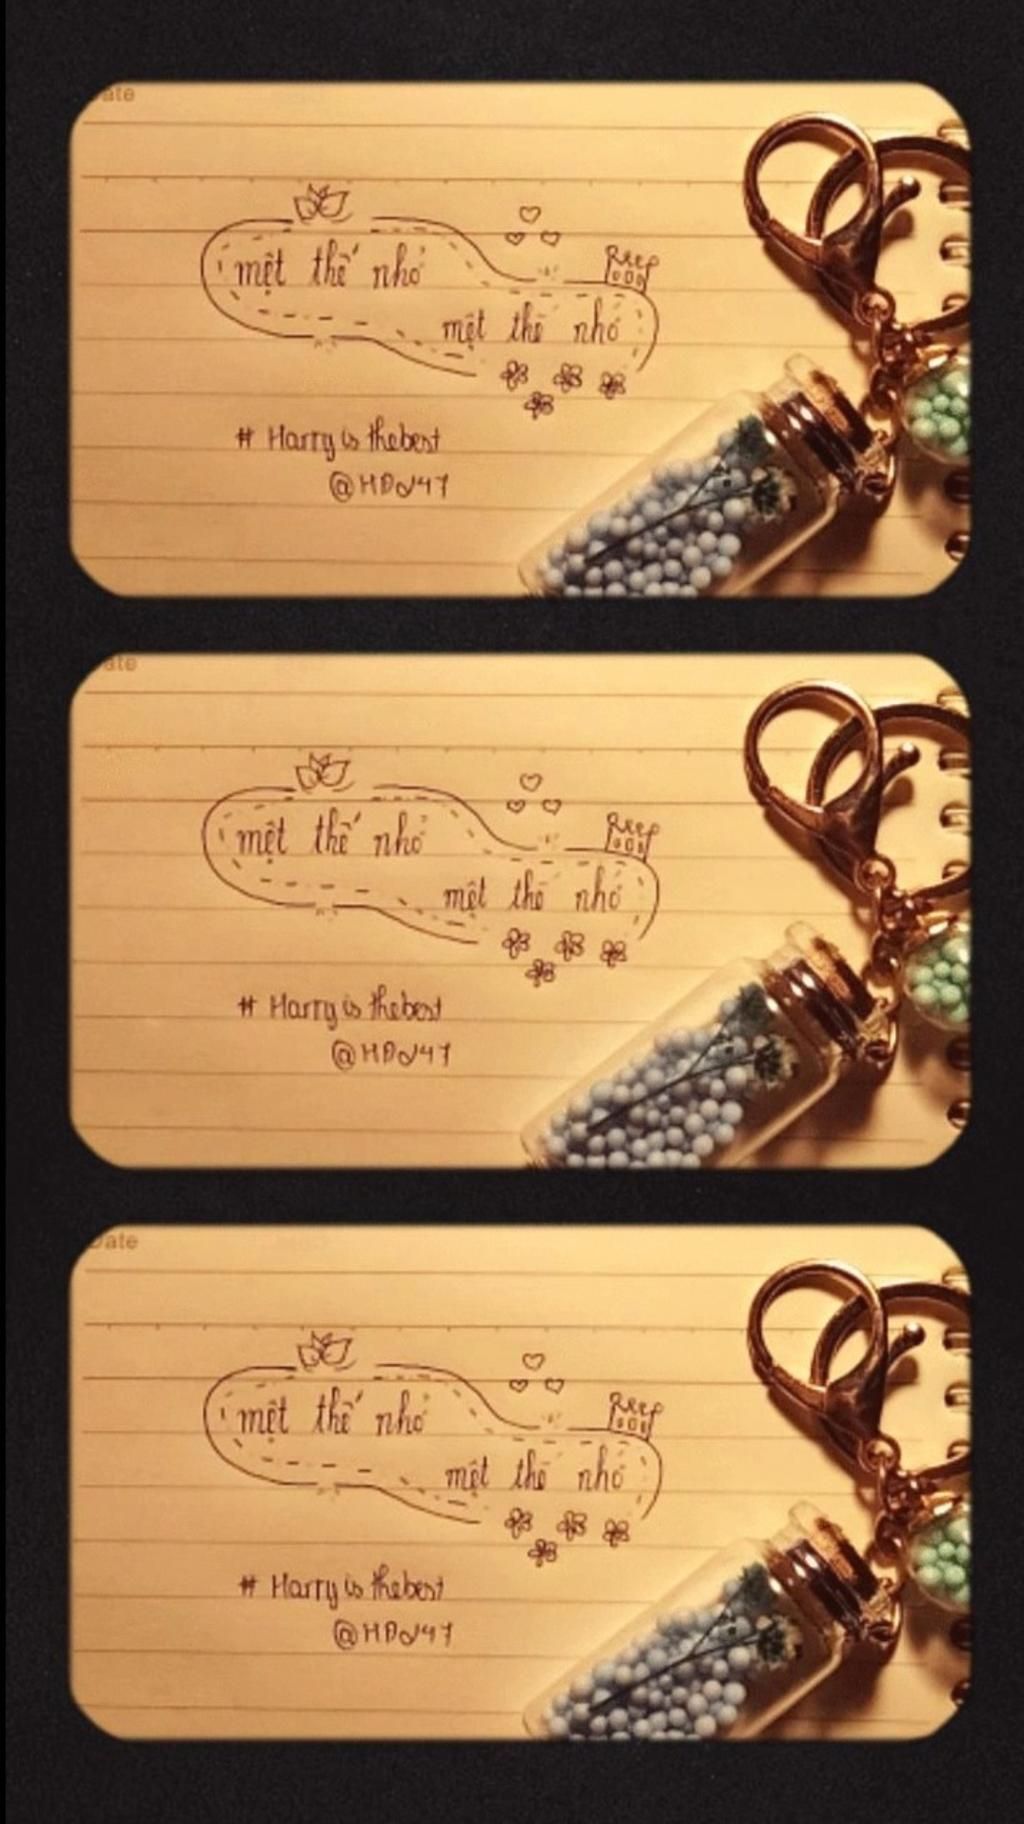 ate
mệt thế nhỏ
mệt thế nhỏ
# Harry is the best
ate
mệt thế nhỏ
mệt thế nhỏ
# Harry is the best
Date
mệt thế nhỏ
mệt thế nhỏ
# Harry is the best